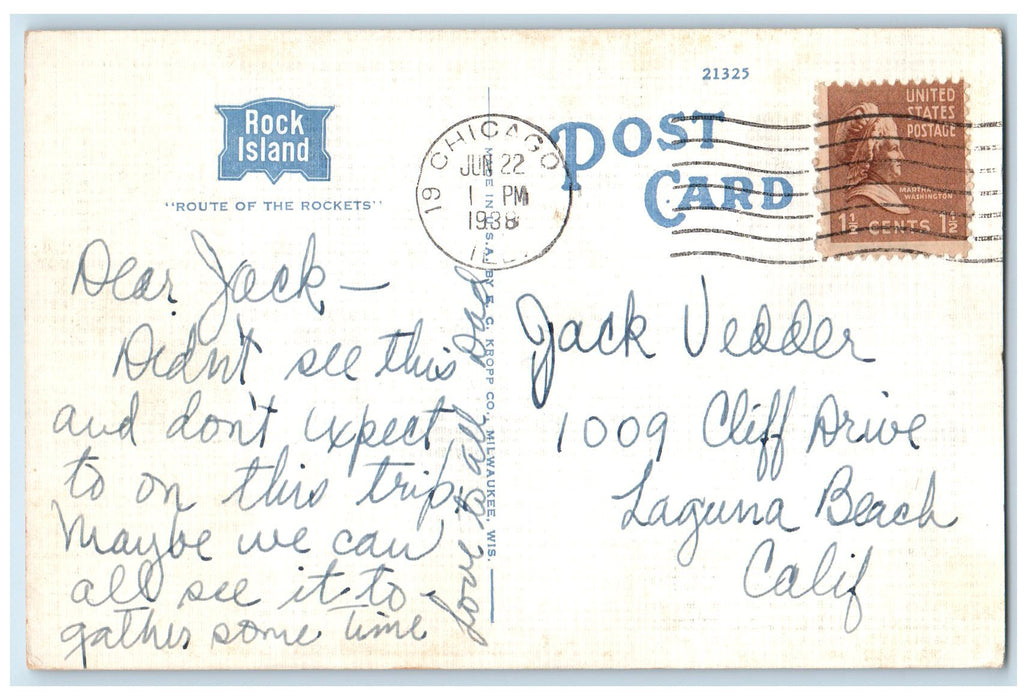 21325
Rock
Island
"ROUTE OF THE ROCKETS"
19 CHICAGO
JUN 22
1 PM
1938
ILL.
POST
CARD
UNITED
STATES
POSTAGE
MARTHA
WASHINGTON
1½ CENTS 1½
MADE IN U.S.A. BY E. C. KROPP CO., MILWAUKEE, WIS.
Dear Jack —
Didn't see this
and don't expect
to on this trip.
Maybe we can
all see it to-
gather some time
Love to all Dad
Jack Vedder
1009 Cliff Drive
Laguna Beach
Calif